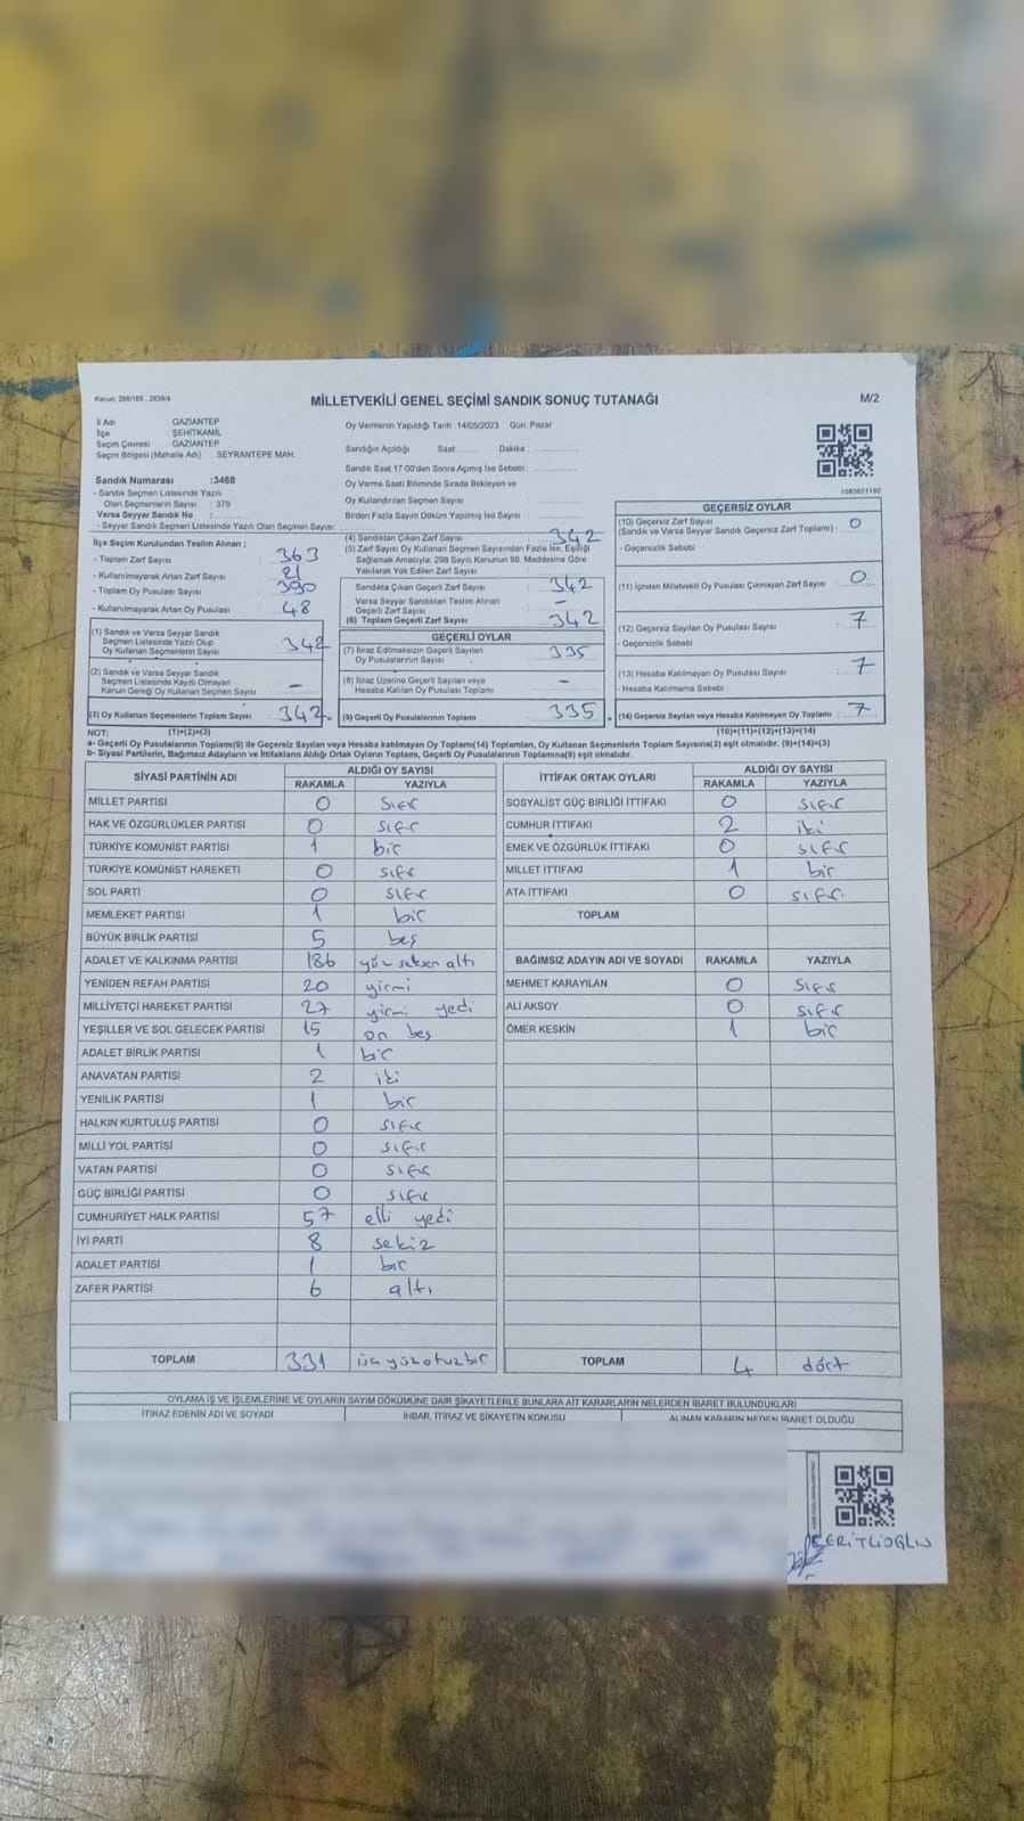 Kanun: 298/105 - 2839/4
MİLLETVEKİLİ GENEL SEÇİMİ SANDIK SONUÇ TUTANAĞI
M/2
İl Adı GAZİANTEP
İlçe ŞEHİTKAMİL
Seçim Çevresi GAZİANTEP
Seçim Bölgesi (Mahalle Adı) : SEYRANTEPE MAH.
Oy Vermenin Yapıldığı Tarih :14/05/2023 Gün: Pazar
Sandığın Açıldığı Saat Dakika :
Sandık Saat 17:00'den Sonra Açılmış İse Sebebi :
Oy Verme Saati Bitiminde Sırada Bekleyen ve
Oy Kullandırılan Seçmen Sayısı
Birden Fazla Sayım Döküm Yapılmış İse Sayısı
Sandık Numarası :3468
- Sandık Seçmen Listesinde Yazılı
Olan Seçmenlerin Sayısı : 379
Varsa Seyyar Sandık No
- Seyyar Sandık Seçmen Listesinde Yazılı Olan Seçmen Sayısı:
İlçe Seçim Kurulundan Teslim Alınan ;
- Toplam Zarf Sayısı 363
- Kullanılmayarak Artan Zarf Sayısı 21
- Toplam Oy Pusulası Sayısı 390
- Kullanılmayarak Artan Oy Pusulası 48
(1) Sandık ve Varsa Seyyar Sandık
Seçmen Listesinde Yazılı Olup
Oy Kullanan Seçmenlerin Sayısı 342
(2) Sandık ve Varsa Seyyar Sandık
Seçmen Listesinde Kaydı Olmayan
Kanun Gereği Oy Kullanan Seçmen Sayısı -
(3) Oy Kullanan Seçmenlerin Toplam Sayısı 342
(4) Sandıktan Çıkan Zarf Sayısı 342
(5) Zarf Sayısı Oy Kullanan Seçmen Sayısından Fazla İse, Eşitliği
Sağlamak Amacıyla; 298 Sayılı Kanunun 98. Maddesine Göre
Yakılarak Yok Edilen Zarf Sayısı
Sandıkta Çıkan Geçerli Zarf Sayısı 342
Varsa Seyyar Sandıktan Teslim Alınan
Geçerli Zarf Sayısı -
(6) Toplam Geçerli Zarf Sayısı 342
GEÇERLİ OYLAR
(7) İtiraz Edilmeksizin Geçerli Sayılan
Oy Pusulalarının Sayısı 335
(8) İtiraz Üzerine Geçerli Sayılan veya
Hesaba Katılan Oy Pusulası Toplamı -
(9) Geçerli Oy Pusulalarının Toplamı 335
GEÇERSİZ OYLAR
(10) Geçersiz Zarf Sayısı
(Sandık ve Varsa Seyyar Sandık Geçersiz Zarf Toplamı) : 0
- Geçersizlik Sebebi
(11) İçinden Milletvekili Oy Pusulası Çıkmayan Zarf Sayısı 0
(12) Geçersiz Sayılan Oy Pusulası Sayısı 7
- Geçersizlik Sebebi
(13) Hesaba Katılmayan Oy Pusulası Sayısı 7
- Hesaba Katılmama Sebebi
(14) Geçersiz Sayılan veya Hesaba Katılmayan Oy Toplamı 7
NOT: (1)+(2)=(3) (10)+(11)+(12)+(13)=(14)
a- Geçerli Oy Pusulalarının Toplamı(9) ile Geçersiz Sayılan veya Hesaba katılmayan Oy Toplamı(14) Toplamları, Oy Kullanan Seçmenlerin Toplam Sayısına(3) eşit olmalıdır. (9)+(14)=(3)
b- Siyasi Partilerin, Bağımsız Adayların ve İttifakların Aldığı Ortak Oyların Toplamı, Geçerli Oy Pusulalarının Toplamına(9) eşit olmalıdır.
SİYASİ PARTİNİN ADI ALDIĞI OY SAYISI
RAKAMLA YAZIYLA
MİLLET PARTİSİ 0 sıfır
HAK VE ÖZGÜRLÜKLER PARTİSİ 0 sıfır
TÜRKİYE KOMÜNİST PARTİSİ 1 bir
TÜRKİYE KOMÜNİST HAREKETİ 0 sıfır
SOL PARTİ 0 sıfır
MEMLEKET PARTİSİ 1 bir
BÜYÜK BİRLİK PARTİSİ 5 beş
ADALET VE KALKINMA PARTİSİ 186 yüz seksen altı
YENİDEN REFAH PARTİSİ 20 yirmi
MİLLİYETÇİ HAREKET PARTİSİ 27 yirmi yedi
YEŞİLLER VE SOL GELECEK PARTİSİ 15 on beş
ADALET BİRLİK PARTİSİ 1 bir
ANAVATAN PARTİSİ 2 iki
YENİLİK PARTİSİ 1 bir
HALKIN KURTULUŞ PARTİSİ 0 sıfır
MİLLİ YOL PARTİSİ 0 sıfır
VATAN PARTİSİ 0 sıfır
GÜÇ BİRLİĞİ PARTİSİ 0 sıfır
CUMHURİYET HALK PARTİSİ 57 elli yedi
İYİ PARTİ 8 sekiz
ADALET PARTİSİ 1 bir
ZAFER PARTİSİ 6 altı
TOPLAM 331 üç yüz otuz bir
İTTİFAK ORTAK OYLARI ALDIĞI OY SAYISI
RAKAMLA YAZIYLA
SOSYALİST GÜÇ BİRLİĞİ İTTİFAKI 0 sıfır
CUMHUR İTTİFAKI 2 iki
EMEK VE ÖZGÜRLÜK İTTİFAKI 0 sıfır
MİLLET İTTİFAKI 1 bir
ATA İTTİFAKI 0 sıfır
TOPLAM
BAĞIMSIZ ADAYIN ADI VE SOYADI RAKAMLA YAZIYLA
MEHMET KARAYILAN 0 sıfır
ALİ AKSOY 0 sıfır
ÖMER KESKİN 1 bir
TOPLAM 4 dört
OYLAMA İŞ VE İŞLEMLERİNE VE OYLARIN SAYIM DÖKÜMÜNE DAİR ŞİKAYETLERLE BUNLARA AİT KARARLARIN NELERDEN İBARET BULUNDUKLARI
İTİRAZ EDENİN ADI VE SOYADI İHBAR, İTİRAZ VE ŞİKAYETİN KONUSU ALINAN KARARIN NEDEN İBARET OLDUĞU